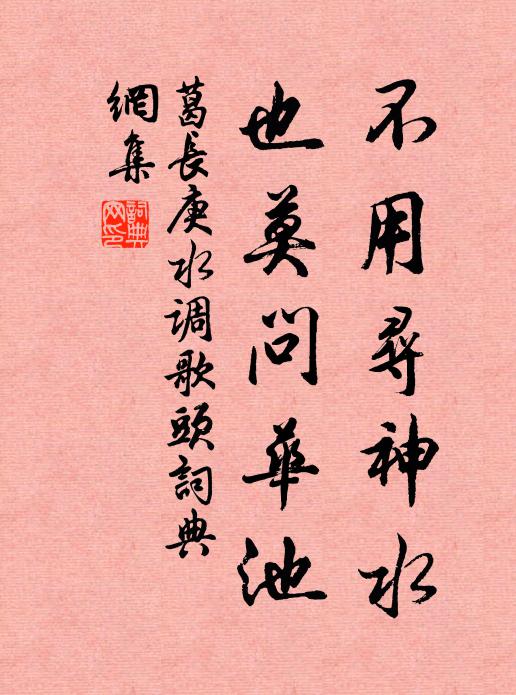 不用尋神水
也莫問華池
葛長庚水调歌頭詞典
網集
詞典網印